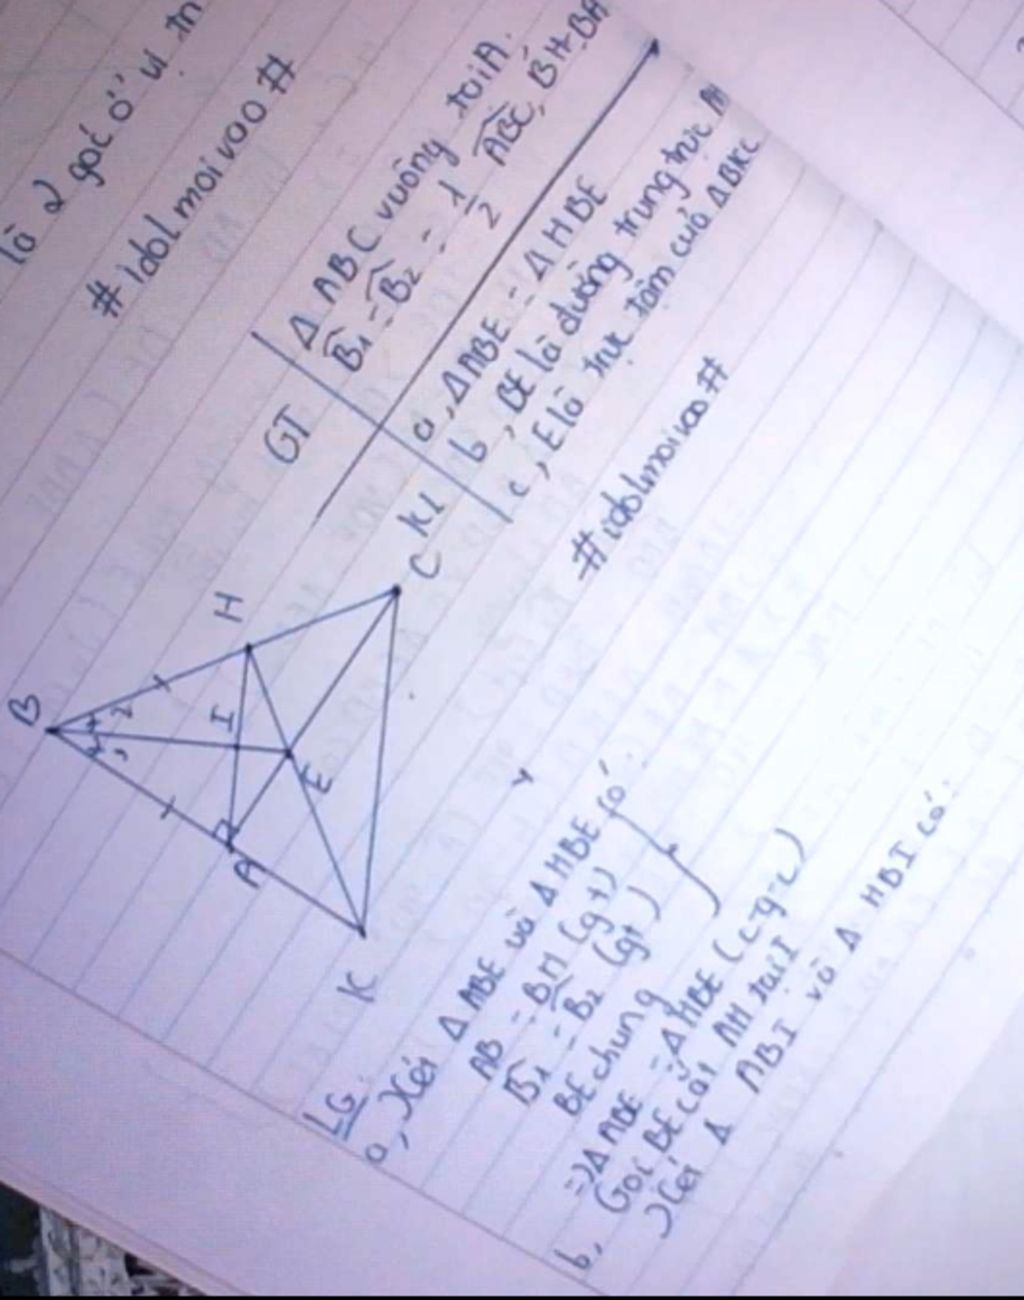 là 2 góc ở vị
#idolmoivoo#
GT
Δ ABC vuông tại A.
B̂1 = B̂2 = 1/2 ABC, BH=BA
KL
a, ΔABE = ΔHBE
b, BE là đường trung trực AH
c, E là trực tâm của ΔBKC
#idolmoivoo#
B
1
2
H
I
A
E
K
C
LG
a, Xét Δ ABE và Δ HBE có:
AB = BH (gt)
B̂1 = B̂2 (gt)
BE chung
=> Δ ABE = Δ HBE (c-g-c)
b, Gọi BE cắt AH tại I
Xét Δ ABI và Δ HBI có: